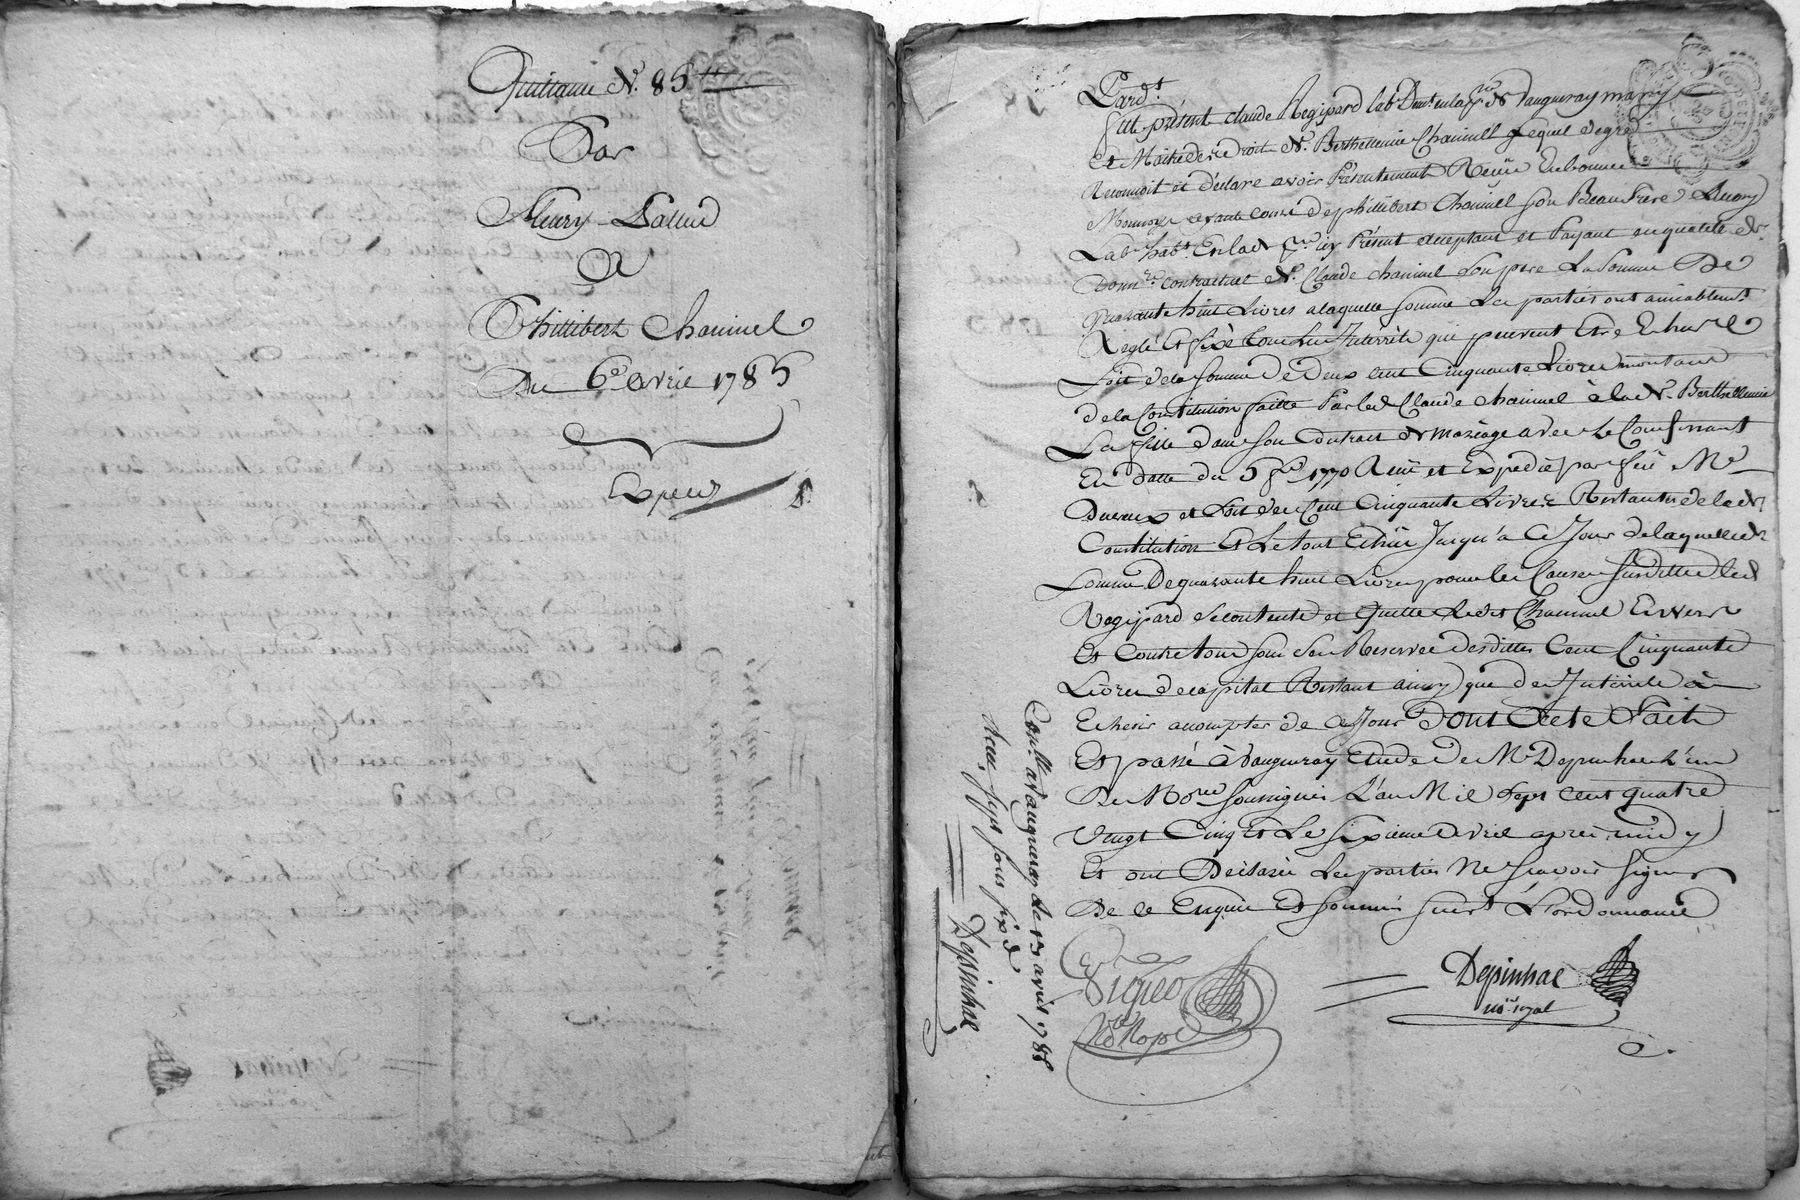 Quittance N. 85 ₶
Par
Fleury
A
Phillibert Chaninel
Du 6e avril 1785
Expédié
Pard.t
fut présent claude Regipard lab. Dem.t en la p.sse de Vaugneray mary
Et Maitre des droits de Berthelemie Chaninel Lequel de gré
Reconnoit et déclare avoir Présentement Reçu En bonne
Monnoye ayante cours de phillibert Chaninel son Beau frère
Lab. hab.t En lad. p.sse icy Présent acceptant et Payant en qualité de
Donn.re contractuel de Claude chaninel son père La somme De
quarante huit Livres a laquelle somme Les parties ont amiablem.t
Reglé Et fixé tous les Interrêts qui peuvent Etre Echus
soit de la somme De Deux cent Cinquante Livres montant
de la Constitution faitte Par led. Claude chaninel à lad. Berthelemie
La fille dans son Contrat de mariage avec Le Confessant
En datte du 5 1770 Reçu et Expédié par feu Me
et soit des Cent Cinquante Livres Restantes de lad.
Constitution Et Le tout Echus Jusqu'à Ce Jour de laquelle
somme De quarante huit Livres pour les Causes susdittes led.
Regipard se contente et Quitte Ledit Chaninel Envers
Et Contre tous sous les Reserves desdittes Cent Cinquante
Livres de capital Restant ainsy que des Interrêts à
Echeoir a compter de ce Jour Dont Acte Fait
Et passé à Vaugneray Etude De Me Depinhac L'un
Des No.res soussignés L'an Mil sept cent quatre
Vingt Cinq Et Le sixieme avril après midy
Et ont Déclaré Les parties Ne scavoir signer
De ce Enquis Et sommés suiv.t L'ordonnance
Depinhac
no.re royal
No.re Royal
Con.llé a Vaugneray le 13 avril 1785
Reçu sept sous six d.
Depinhac